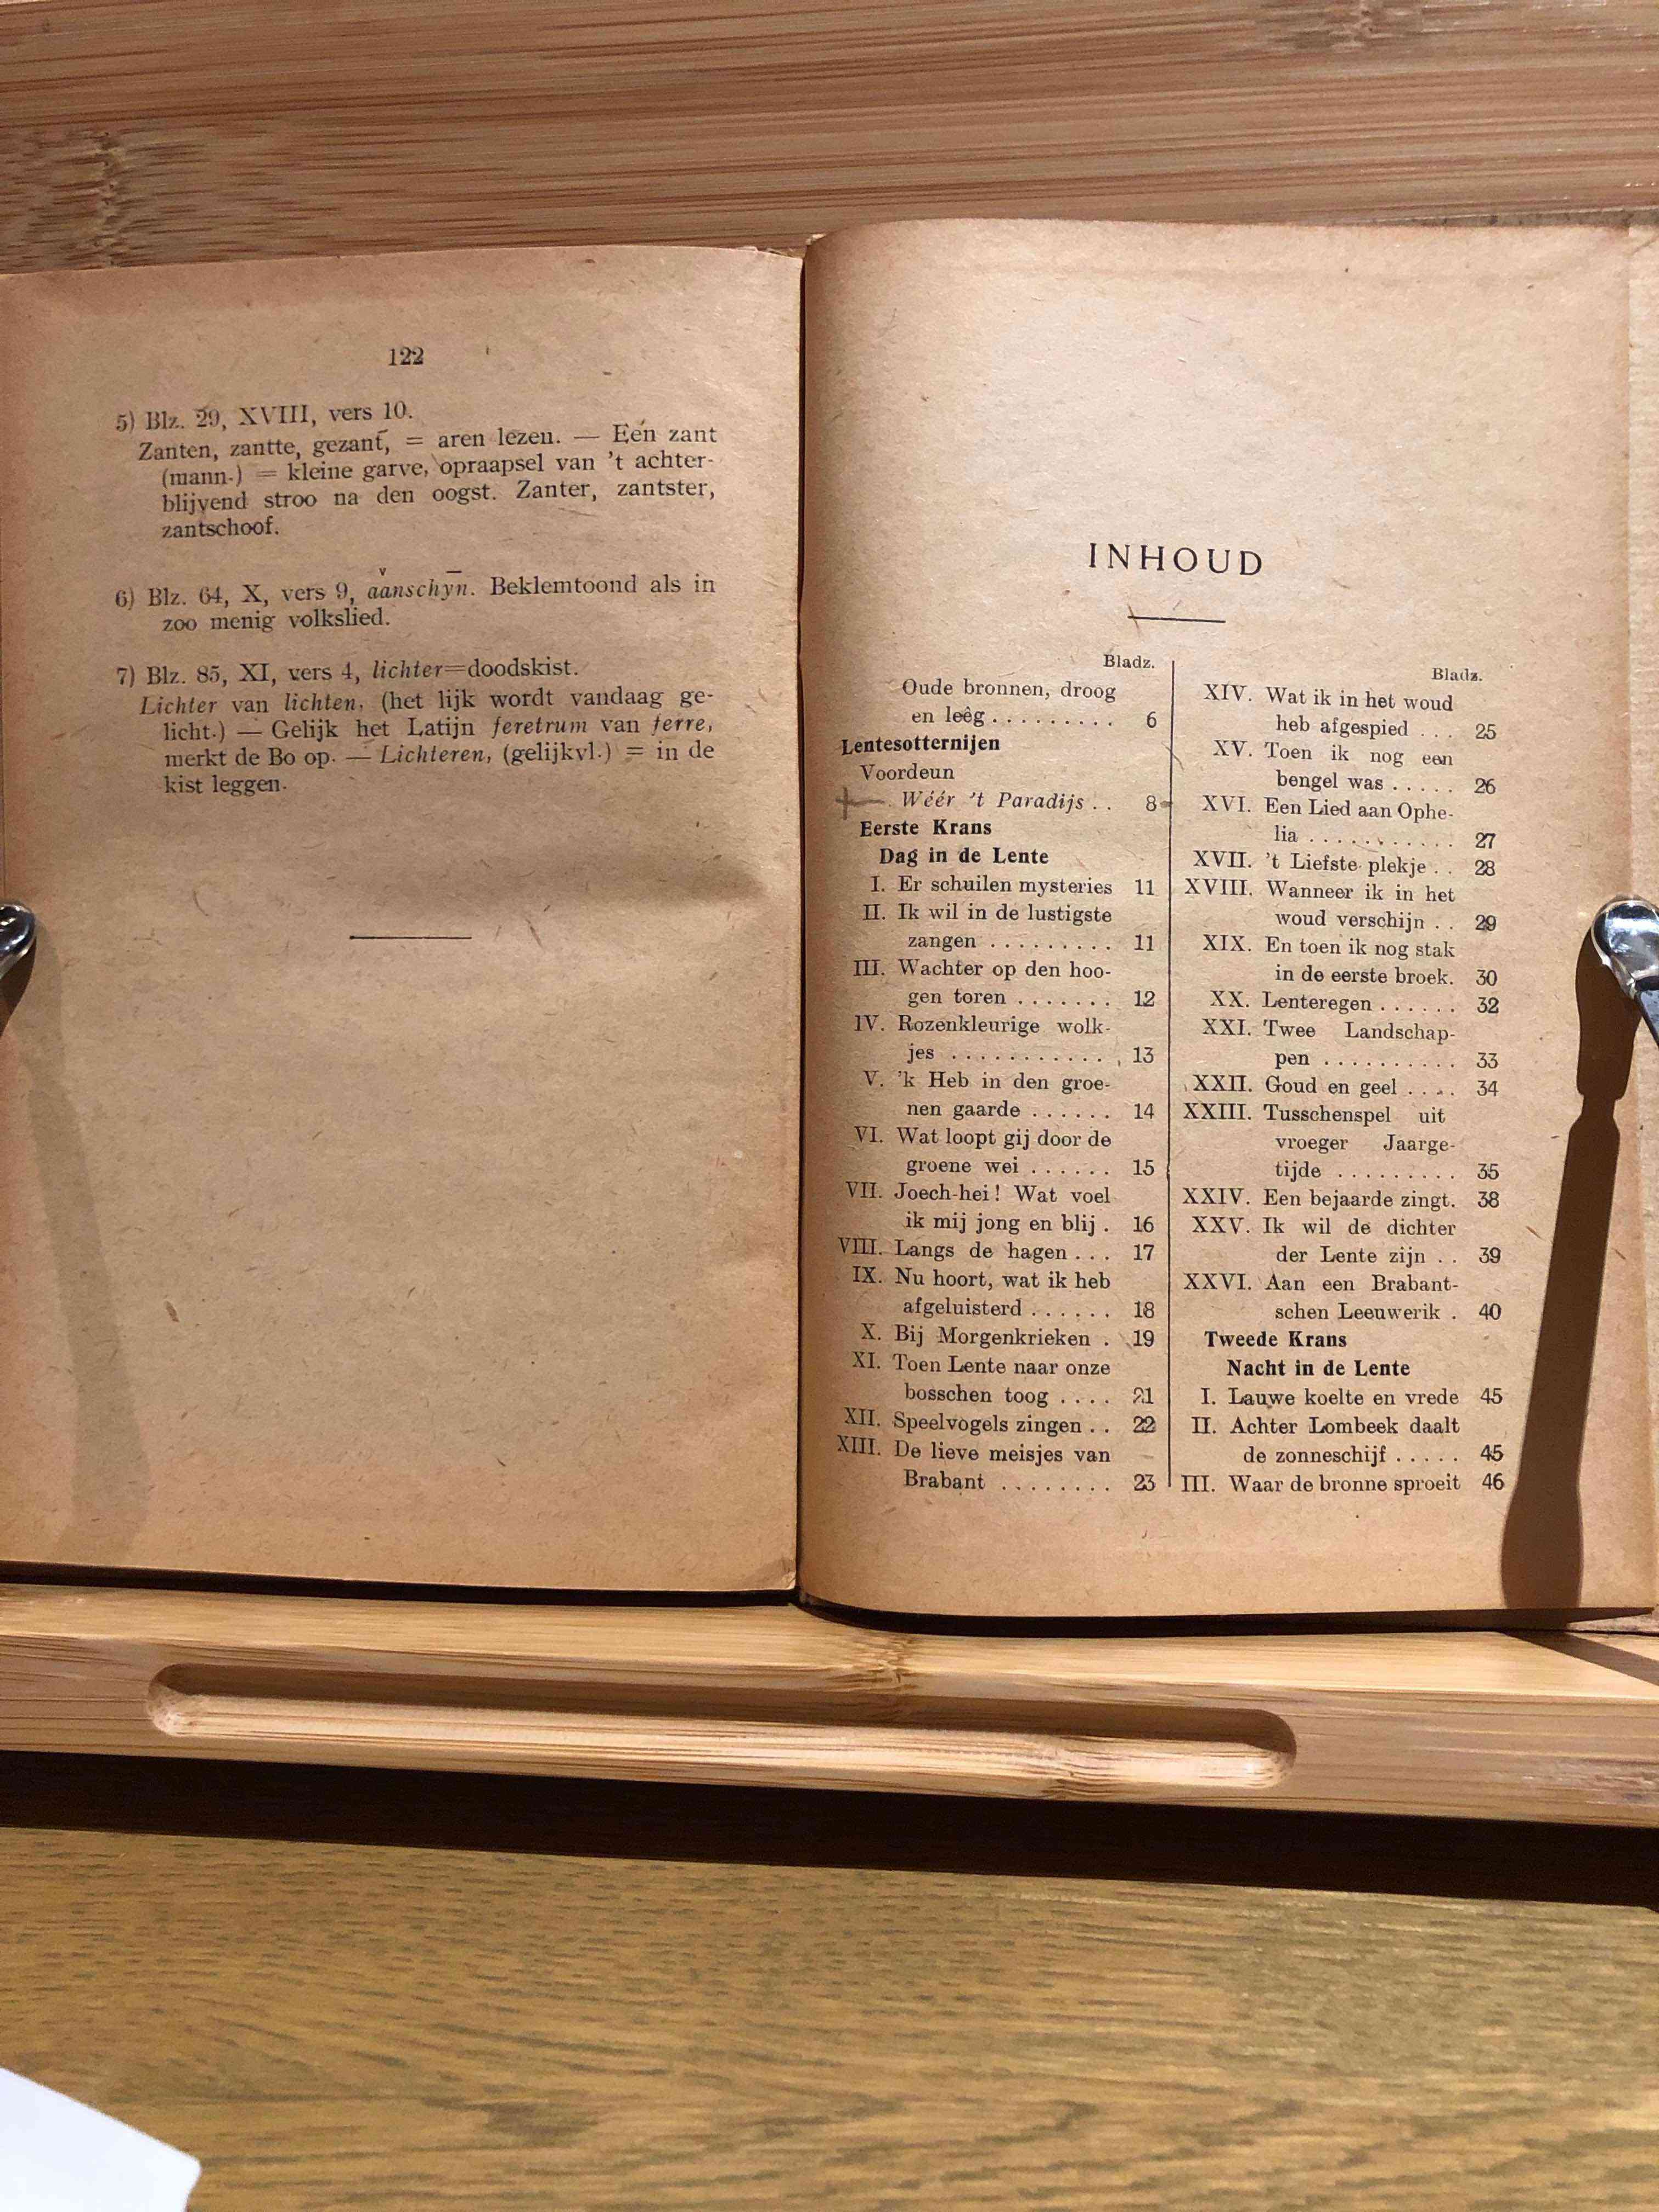 122
5) Blz. 29, XVIII, vers 10.
Zanten, zantte, gezant, = aren lezen. — Eén zant
(mann.) = kleine garve, opraapsel van 't achter-
blijvend stroo na den oogst. Zanter, zantster,
zantschoof.
6) Blz. 64, X, vers 9, aanschyn. Beklemtoond als in
zoo menig volkslied.
7) Blz. 85, XI, vers 4, lichter=doodskist.
Lichter van lichten, (het lijk wordt vandaag ge-
licht.) — Gelijk het Latijn feretrum van ferre,
merkt de Bo op. — Lichteren, (gelijkvl.) = in de
kist leggen.
INHOUD
Bladz.
Oude bronnen, droog
en leêg . . . . . . . . . 6
Lentesotternijen
Voordeun
Wéér 't Paradijs . . 8
Eerste Krans
Dag in de Lente
I. Er schuilen mysteries 11
II. Ik wil in de lustigste
zangen . . . . . . . . . 11
III. Wachter op den hoo-
gen toren . . . . . . . 12
IV. Rozenkleurige wolk-
jes . . . . . . . . . . . 13
V. 'k Heb in den groe-
nen gaarde . . . . . . 14
VI. Wat loopt gij door de
groene wei . . . . . . 15
VII. Joech-hei! Wat voel
ik mij jong en blij . 16
VIII. Langs de hagen . . . 17
IX. Nu hoort, wat ik heb
afgeluisterd . . . . . . 18
X. Bij Morgenkrieken . 19
XI. Toen Lente naar onze
bosschen toog . . . . 21
XII. Speelvogels zingen . . 22
XIII. De lieve meisjes van
Brabant . . . . . . . . 23
Bladz.
XIV. Wat ik in het woud
heb afgespied . . . 25
XV. Toen ik nog een
bengel was . . . . . 26
XVI. Een Lied aan Ophe-
lia . . . . . . . . . . . 27
XVII. 't Liefste plekje . . 28
XVIII. Wanneer ik in het
woud verschijn . . 29
XIX. En toen ik nog stak
in de eerste broek. 30
XX. Lenteregen . . . . . . 32
XXI. Twee Landschap-
pen . . . . . . . . . . 33
XXII. Goud en geel . . . . 34
XXIII. Tusschenspel uit
vroeger Jaarge-
tijde . . . . . . . . . 35
XXIV. Een bejaarde zingt. 38
XXV. Ik wil de dichter
der Lente zijn . . 39
XXVI. Aan een Brabant-
schen Leeuwerik . 40
Tweede Krans
Nacht in de Lente
I. Lauwe koelte en vrede 45
II. Achter Lombeek daalt
de zonneschijf . . . . . 45
III. Waar de bronne sproeit 46